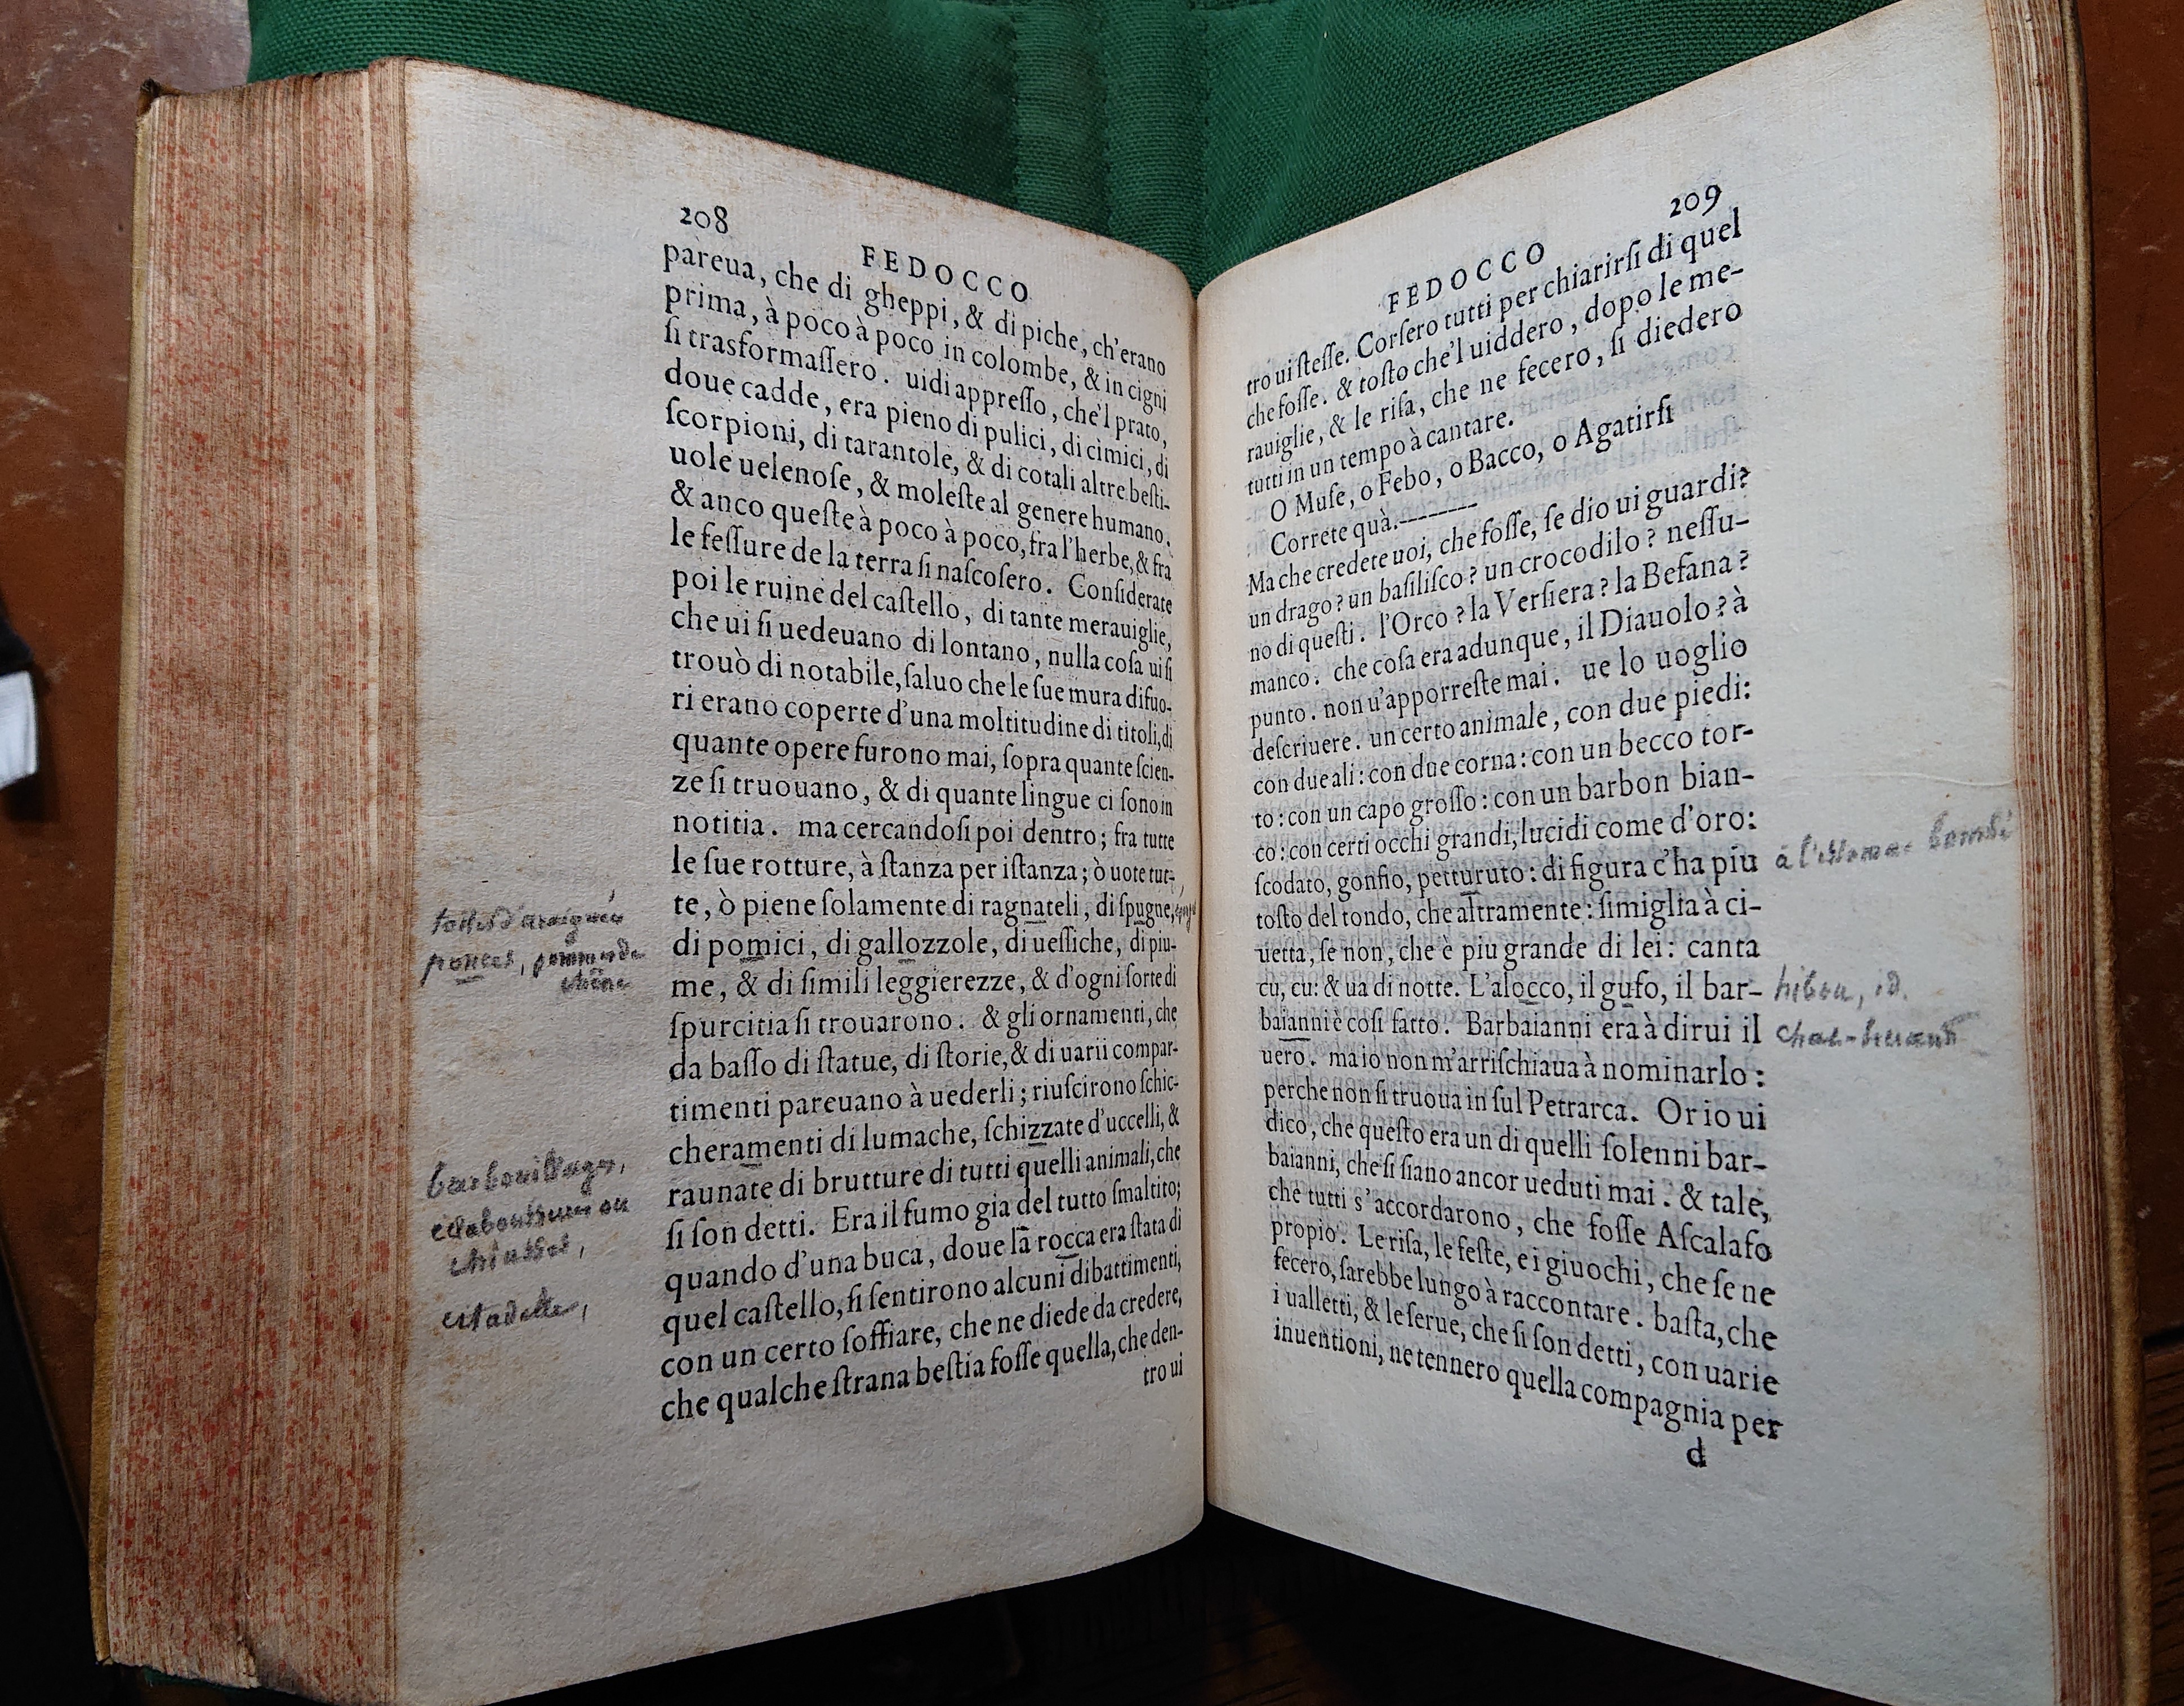 208
FEDOCCO
pareua, che di gheppi, & di piche, ch'erano
prima, à poco à poco in colombe, & in cigni
ſi trasformaſſero. uidi appreſſo, che'l prato,
doue cadde, era pieno di pulici, di cimici, di
ſcorpioni, di tarantole, & di cotali altre beſti-
uole uelenoſe, & moleſte al genere humano.
& anco queſte à poco à poco, fra l'herbe, & fra
le feſſure de la terra ſi naſcoſero. Conſiderate
poi le ruine del caſtello, di tante merauiglie,
che ui ſi uedeuano di lontano, nulla coſa ui ſi
trouò di notabile, ſaluo che le ſue mura difuo-
ri erano coperte d'una moltitudine di titoli, di
quante opere furono mai, ſopra quante ſcien-
ze ſi truouano, & di quante lingue ci ſono in
notitia. ma cercandoſi poi dentro; fra tutte
le ſue rotture, à ſtanza per iſtanza; ò uote tut-
te, ò piene ſolamente di ragnateli, di ſpugne,
di pomici, di gallozzole, di ueſſiche, di piu-
me, & di ſimili leggierezze, & d'ogni ſorte di
ſpurcitia ſi trouarono. & gli ornamenti, che
da baſſo di ſtatue, di ſtorie, & di uarii compar-
timenti pareuano à uederli; riuſcirono ſchic-
cheramenti di lumache, ſchizzate d'uccelli, &
raunate di brutture di tutti quelli animali, che
ſi ſon detti. Era il fumo gia del tutto ſmaltito;
quando d'una buca, doue la rocca era ſtata di
quel caſtello, ſi ſentirono alcuni dibattimenti,
con un certo ſoffiare, che ne diede da credere,
che qualche ſtrana beſtia foſſe quella, che den-
tro ui
toiles d'araignées
ponces, pomme de
chêne
barbouillages,
eclaboussures ou
chiasses,
citadelle,
209
FEDOCCO
tro ui ſteſſe. Corſero tutti per chiarirſi di quel
che foſſe. & toſto che'l uiddero, dopo le me-
rauiglie, & le riſa, che ne fecero, ſi diedero
tutti in un tempo à cantare.
O Muſe, o Febo, o Bacco, o Agatirſi
Correte quà.--------
Ma che credete uoi, che foſſe, ſe dio ui guardi?
un drago? un baſiliſco? un crocodilo? neſſu-
no di queſti. l'Orco? la Verſiera? la Befana?
manco. che coſa era adunque, il Diauolo? à
punto. non u'apporreſte mai. ue lo uoglio
deſcriuere. un certo animale, con due piedi:
con due ali: con due corna: con un becco tor-
to: con un capo groſſo: con un barbon bian-
co: con certi occhi grandi, lucidi come d'oro:
ſcodato, gonfio, petturuto: di figura c'ha piu
toſto del tondo, che altramente: ſimiglia à ci-
uetta, ſe non, che è piu grande di lei: canta
cu, cu: & ua di notte. L'alocco, il gufo, il bar-
baianni è coſi fatto. Barbaianni era à dirui il
uero. ma io non m'arriſchiaua à nominarlo:
perche non ſi truoua in ſul Petrarca. Or io ui
dico, che queſto era un di quelli ſolenni bar-
baianni, che ſi ſiano ancor ueduti mai. & tale,
che tutti s'accordarono, che foſſe Aſcalafo
propio. Le riſa, le feſte, e i giuochi, che ſe ne
fecero, ſarebbe lungo à raccontare. baſta, che
i ualletti, & le ſerue, che ſi ſon detti, con uarie
inuentioni, ne tennero quella compagnia per
d
à l'estomac bombé
hibou, id.
chat-huant